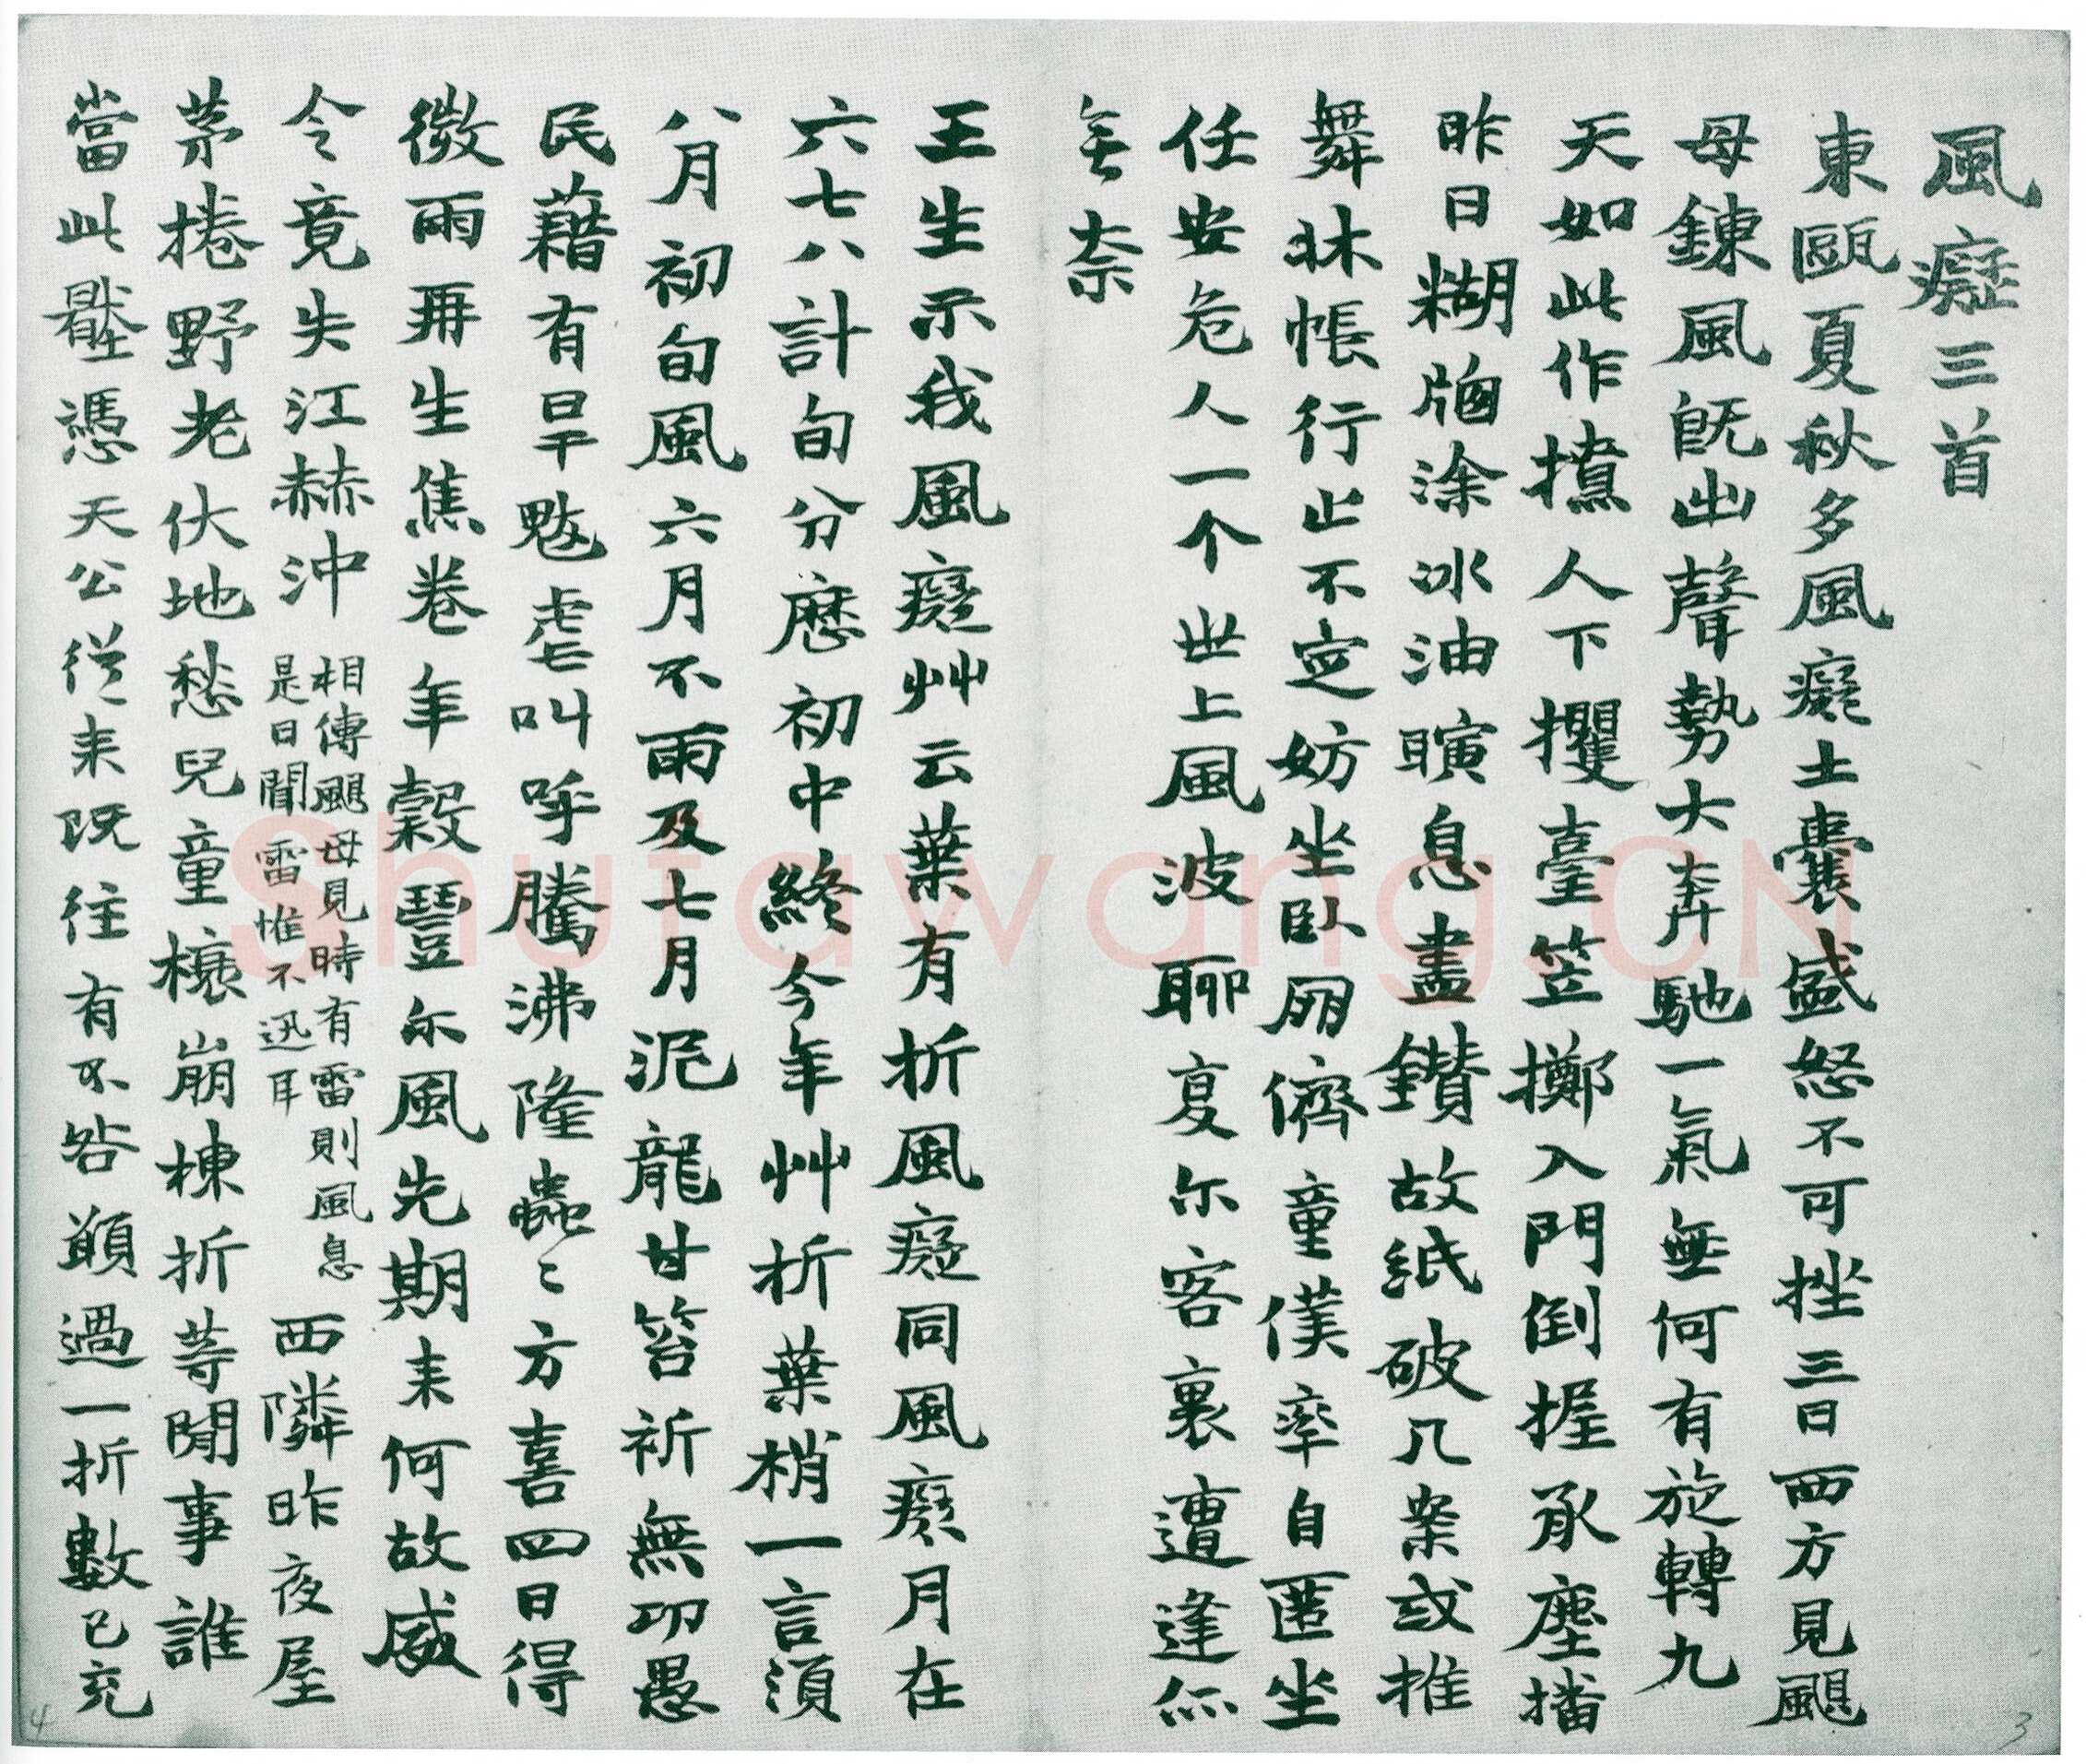 風癡三首
東甌夏秋多風癡土囊盛怒不可挫三日西方見颶
母鍊風既出聲勢大奔馳一氣無何有旋轉九
天如此作攩人下攫臺笠擲入門倒握承塵播
昨日糊牕涂冰油曠息盡鑽故紙破几案或推
舞牀帳行止不定妨坐臥朋儕童僕率自匿坐
任安危人一个世上風波聊复尔客裏遭逢尔
无奈
王生示我風癡艸云葉有折風癡同風癡月在
六七八計旬分應初中終今年艸折葉梢一言須
八月初旬風六月不雨及七月泥龍甘笞祈無功愚
民藉有旱魃虐叫呼騰沸隆蟲〻方喜四日得
微雨再生焦卷年穀豐尒風先期來何故威
令竟失江赫沖
相傳颶母見時有雷則風息
是日聞雷惟不迅耳
西隣昨夜屋
茅捲野老伏地愁兒童榱崩棟折等閒事誰
當此壆憑天公從來既往有不咎顚過一折數已充
Shufawang.CN
3
4